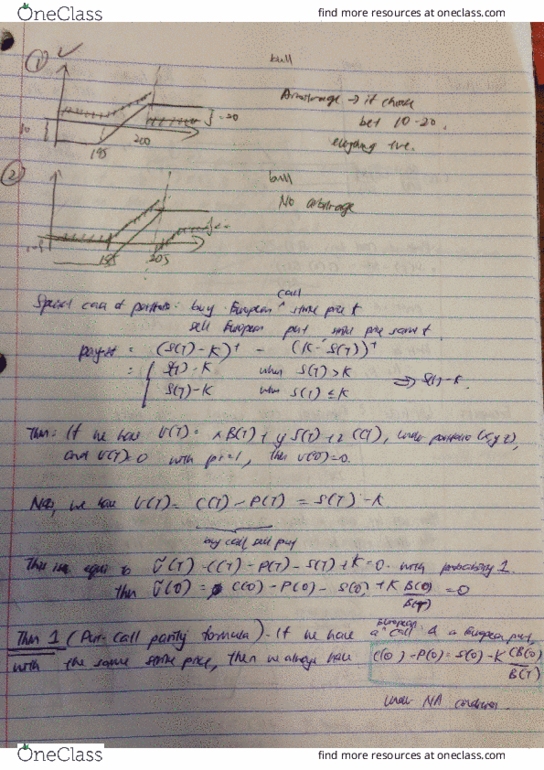 OneClass
find more resources at oneclass.com
① bull
Arbitrage → if choose
bet 10-20,
10 195 200 -20
② bull
No arbitrage
195 205
Special case of portfolio: buy European call strike price K
sell European put strike price same K
payoff = (S(T) - K)⁺ - (K - S(T))⁺
= { S(T) - K when S(T) > K
S(T) - K when S(T) ≤ K ⇒ S(T) - K.
Thm: If we have V(T) = xB(T) + yS(T) + zC(T), under portfolio (x,y,z),
and V(T)=0 with pr=1, then V(0)=0.
Now, we have V(T) = C(T) - P(T) = S(T) - K
buy call, sell put
This is equal to Ṽ(T) = C(T) - P(T) - S(T) + K = 0 with probability 1.
then Ṽ(0) = C(0) - P(0) - S(0) + K B(0)/B(T) = 0
Thm 1 (Put-Call parity formula). If we have a European call & a European put,
with the same strike price, then we always have C(0) - P(0) = S(0) - K B(0)/B(T)
under NA condition.
OneClass
find more resources at oneclass.com